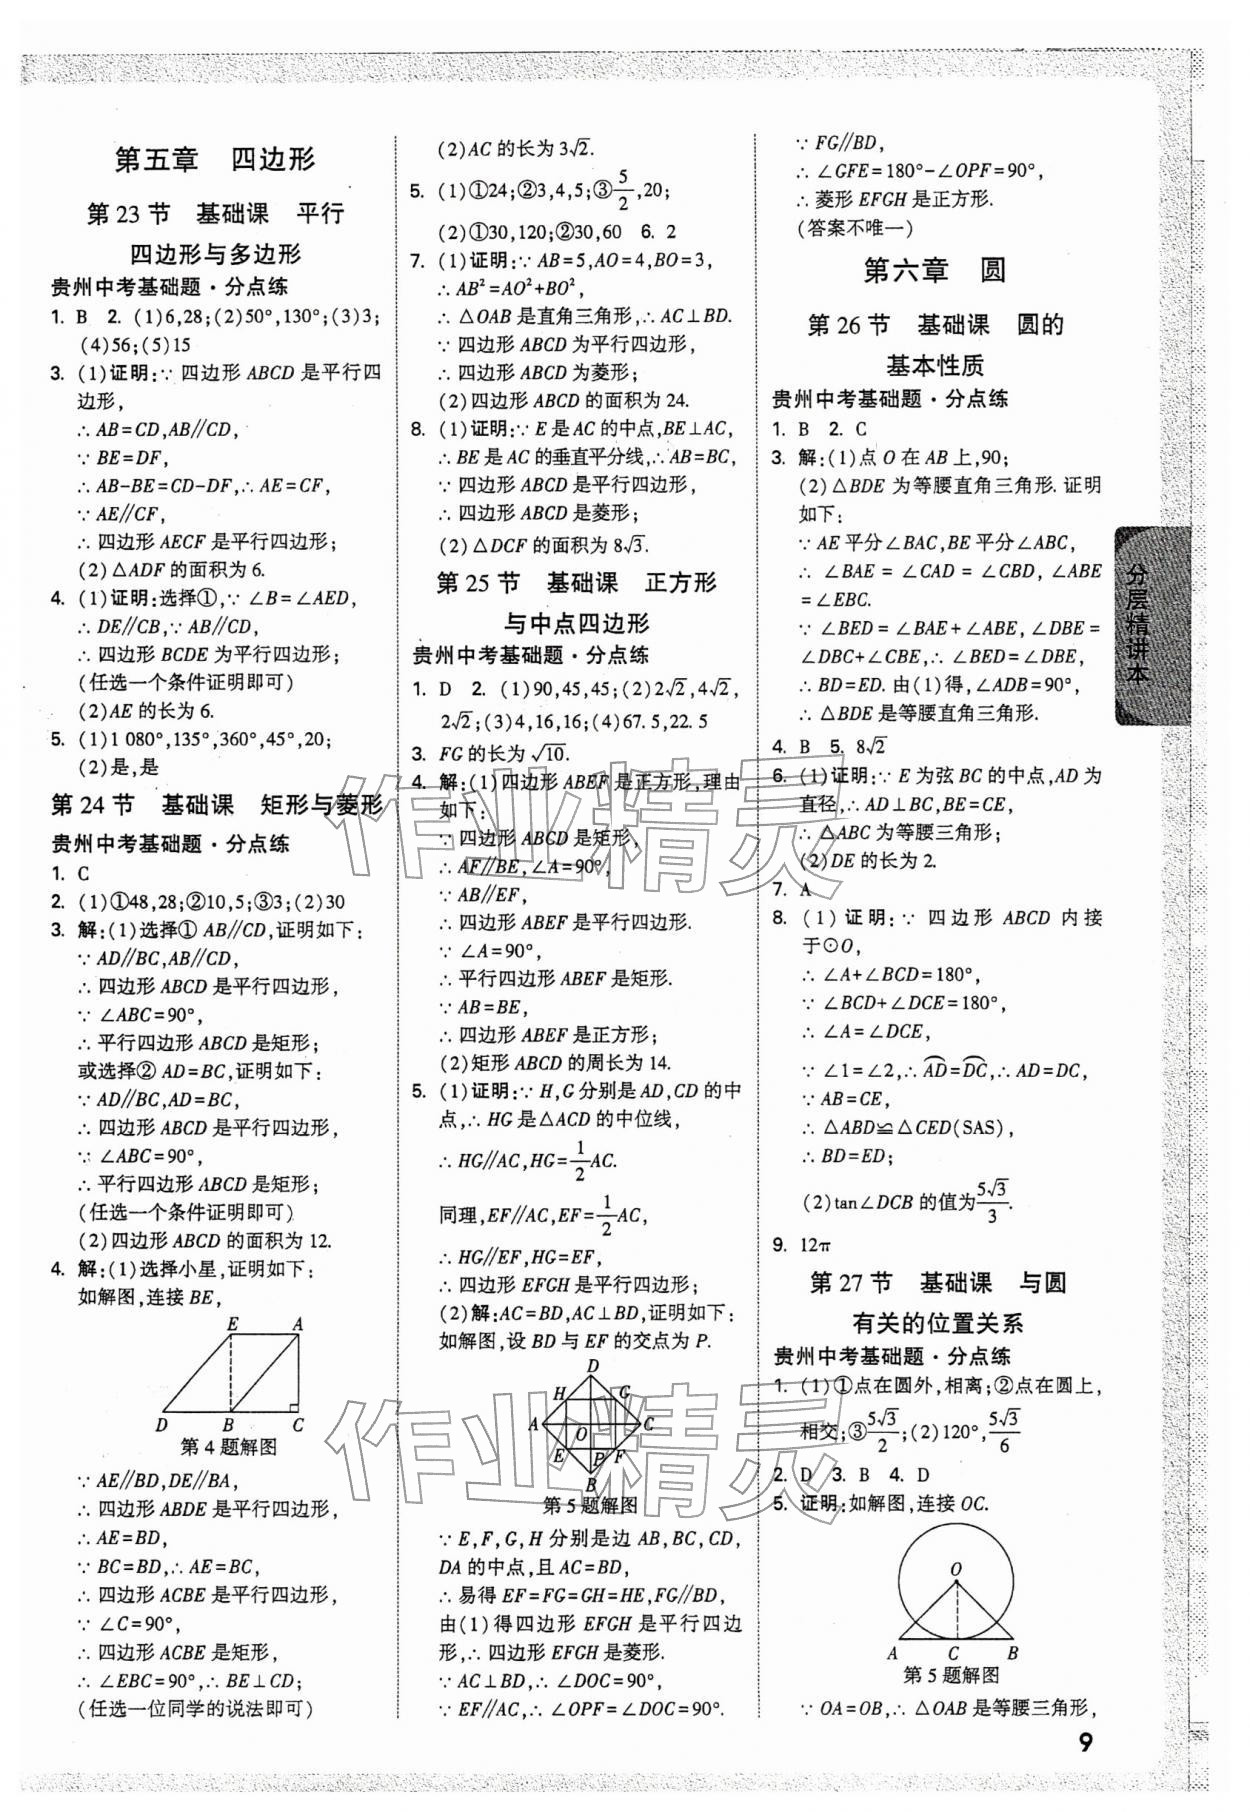 第五章 四边形
第 23 节 基础课 平行
四边形与多边形
贵州中考基础题·分点练
1. B 2. (1)6,28;(2)50°,130°;(3)3;
(4)56;(5)15
3. (1)证明:∵ 四边形 ABCD 是平行四
边形,
∴ AB=CD,AB∥CD,
∵ BE=DF,
∴ AB-BE=CD-DF,∴ AE=CF,
∵ AE∥CF,
∴ 四边形 AECF 是平行四边形;
(2)△ADF 的面积为 6.
4. (1)证明:选择①,∵ ∠B=∠AED,
∴ DE∥CB,∵ AB∥CD,
∴ 四边形 BCDE 为平行四边形;
(任选一个条件证明即可)
(2)AE 的长为 6.
5. (1)1 080°,135°,360°,45°,20;
(2)是,是
第 24 节 基础课 矩形与菱形
贵州中考基础题·分点练
1. C
2. (1)①48,28;②10,5;③3;(2)30
3. 解:(1)选择① AB∥CD,证明如下:
∵ AD∥BC,AB∥CD,
∴ 四边形 ABCD 是平行四边形,
∵ ∠ABC=90°,
∴ 平行四边形 ABCD 是矩形;
或选择② AD=BC,证明如下:
∵ AD∥BC,AD=BC,
∴ 四边形 ABCD 是平行四边形,
∵ ∠ABC=90°,
∴ 平行四边形 ABCD 是矩形;
(任选一个条件证明即可)
(2)四边形 ABCD 的面积为 12.
4. 解:(1)选择小星,证明如下:
如解图,连接 BE,
E A
D B C
第 4 题解图
∵ AE∥BD,DE∥BA,
∴ 四边形 ABDE 是平行四边形,
∴ AE=BD,
∵ BC=BD,∴ AE=BC,
∴ 四边形 ACBE 是平行四边形,
∵ ∠C=90°,
∴ 四边形 ACBE 是矩形,
∴ ∠EBC=90°,∴ BE⊥CD;
(任选一位同学的说法即可)
(2)AC 的长为 3√2.
5. (1)①24;②3,4,5;③5/2,20;
(2)①30,120;②30,60 6. 2
7. (1)证明:∵ AB=5,AO=4,BO=3,
∴ AB²=AO²+BO²,
∴ △OAB 是直角三角形,∴ AC⊥BD.
∵ 四边形 ABCD 为平行四边形,
∴ 四边形 ABCD 为菱形;
(2)四边形 ABCD 的面积为 24.
8. (1)证明:∵ E 是 AC 的中点,BE⊥AC,
∴ BE 是 AC 的垂直平分线,∴ AB=BC,
∵ 四边形 ABCD 是平行四边形,
∴ 四边形 ABCD 是菱形;
(2)△DCF 的面积为 8√3.
第 25 节 基础课 正方形
与中点四边形
贵州中考基础题·分点练
1. D 2. (1)90,45,45;(2)2√2,4√2,
2√2;(3)4,16,16;(4)67.5,22.5
3. FG 的长为√10.
4. 解:(1)四边形 ABEF 是正方形,理由
如下:
∵ 四边形 ABCD 是矩形,
∴ AF∥BE,∠A=90°,
∵ AB∥EF,
∴ 四边形 ABEF 是平行四边形.
∵ ∠A=90°,
∴ 平行四边形 ABEF 是矩形.
∵ AB=BE,
∴ 四边形 ABEF 是正方形;
(2)矩形 ABCD 的周长为 14.
5. (1)证明:∵ H,G 分别是 AD,CD 的中
点,∴ HG 是△ACD 的中位线,
∴ HG∥AC,HG=1/2AC.
同理,EF∥AC,EF=1/2AC,
∴ HG∥EF,HG=EF,
∴ 四边形 EFGH 是平行四边形;
(2)解:AC=BD,AC⊥BD,证明如下:
如解图,设 BD 与 EF 的交点为 P.
D
H G
A O C
E P F
B
第 5 题解图
∵ E,F,G,H 分别是边 AB,BC,CD,
DA 的中点,且 AC=BD,
∴ 易得 EF=FG=GH=HE,FG∥BD,
由(1)得四边形 EFGH 是平行四边
形,∴ 四边形 EFGH 是菱形.
∵ AC⊥BD,∴ ∠DOC=90°,
∵ EF∥AC,∴ ∠OPF=∠DOC=90°,
∵ FG∥BD,
∴ ∠GFE=180°-∠OPF=90°,
∴ 菱形 EFGH 是正方形.
(答案不唯一)
第六章 圆
第 26 节 基础课 圆的
基本性质
贵州中考基础题·分点练
1. B 2. C
3. 解:(1)点 O 在 AB 上,90;
(2)△BDE 为等腰直角三角形. 证明
如下:
∵ AE 平分∠BAC,BE 平分∠ABC,
∴ ∠BAE=∠CAD=∠CBD,∠ABE
=∠EBC.
∵ ∠BED=∠BAE+∠ABE,∠DBE=
∠DBC+∠CBE,∴ ∠BED=∠DBE,
∴ BD=ED. 由(1)得,∠ADB=90°,
∴ △BDE 是等腰直角三角形.
4. B 5. 8√2
6. (1)证明:∵ E 为弦 BC 的中点,AD 为
直径,∴ AD⊥BC,BE=CE,
∴ △ABC 为等腰三角形;
(2)DE 的长为 2.
7. A
8. (1)证明:∵ 四边形 ABCD 内接
于⊙O,
∴ ∠A+∠BCD=180°,
∵ ∠BCD+∠DCE=180°,
∴ ∠A=∠DCE,
∵ ∠1=∠2,∴ AD⌢=DC⌢,∴ AD=DC,
∵ AB=CE,
∴ △ABD≌△CED(SAS),
∴ BD=ED;
(2)tan∠DCB 的值为5√3/3.
9. 12π
第 27 节 基础课 与圆
有关的位置关系
贵州中考基础题·分点练
1. (1)①点在圆外,相离;②点在圆上,
相交;③5√3/2;(2)120°,5√3/6
2. D 3. B 4. D
5. 证明:如解图,连接 OC.
O
A C B
第 5 题解图
∵ OA=OB,∴ △OAB 是等腰三角形,
分层精讲本
9
作业精灵
作业精灵